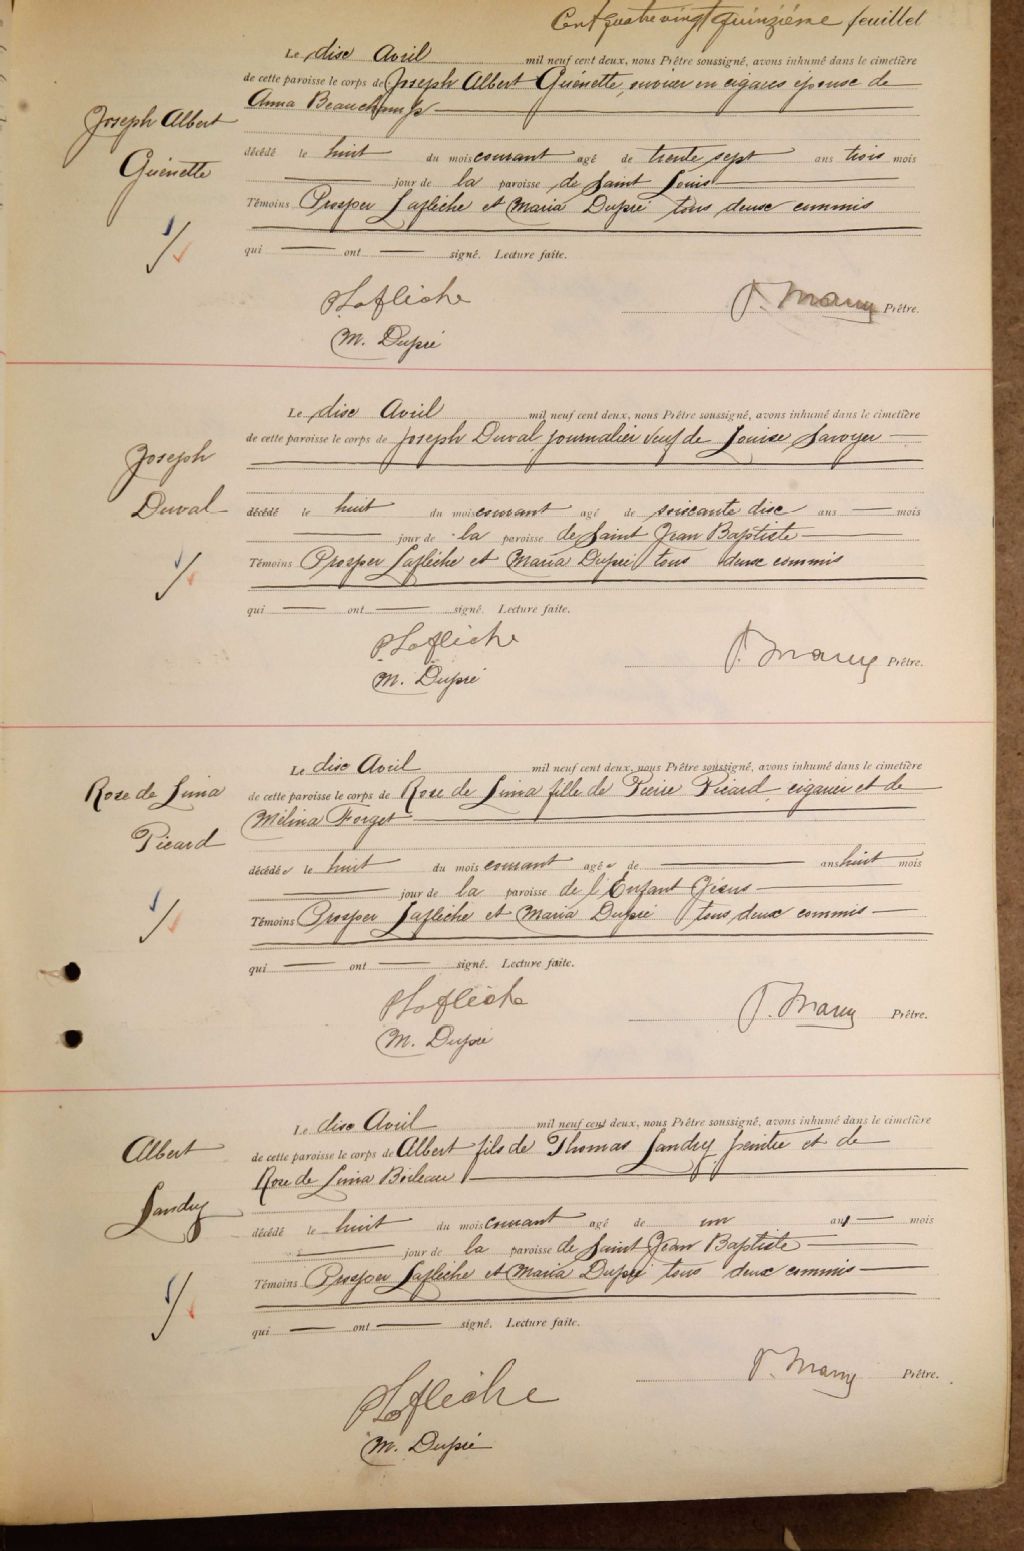 Cent quatre vingt quinzième feuillet
Le dixe Avril mil neuf cent deux, nous Prêtre soussigné, avons inhumé dans le cimetière
de cette paroisse le corps de Joseph Albert Guénette, ouvrier en cigares épouse de
Anna Beauchamp
Joseph Albert
Guénette
décédé le huit du mois courant agé de trente sept ans trois mois
jour de la paroisse de Saint Louis
Témoins Prosper Laflèche et Maria Dupré tous deuxe commis
qui ont signé. Lecture faite.
PLaflèche
P. Prêtre.
M. Dupré
Le dixe Avril mil neuf cent deux, nous Prêtre soussigné, avons inhumé dans le cimetière
de cette paroisse le corps de Joseph Duval journalier veuf de Louise Savoyer
Joseph
Duval
décédé le huit du mois courant agé de soixante dixe ans mois
jour de la paroisse de Saint Jean Baptiste
Témoins Prosper Laflèche et Maria Dupré tous deuxe commis
qui ont signé. Lecture faite.
PLaflèche
P. Prêtre.
M. Dupré
Le dixe Avril mil neuf cent deux, nous Prêtre soussigné, avons inhumé dans le cimetière
de cette paroisse le corps de Rose de Lima fille de Pierre Picard, cigarier et de
Mélina Forget
Rose de Lima
Picard
décédée le huit du mois courant agée de ans huit mois
jour de la paroisse de l'Enfant Jésus
Témoins Prosper Laflèche et Maria Dupré tous deux commis
qui ont signé. Lecture faite.
PLaflèche
P. Prêtre.
M. Dupré
Le dixe Avril mil neuf cent deux, nous Prêtre soussigné, avons inhumé dans le cimetière
de cette paroisse le corps de Albert fils de Thomas Landry peintre et de
Rose de Lima Boileau
Albert
Landry
décédé le huit du mois courant agé de un an mois
jour de la paroisse de Saint Jean Baptiste
Témoins Prosper Laflèche et Maria Dupré tous deux commis
qui ont signé. Lecture faite.
P. Prêtre.
PLaflèche
M. Dupré